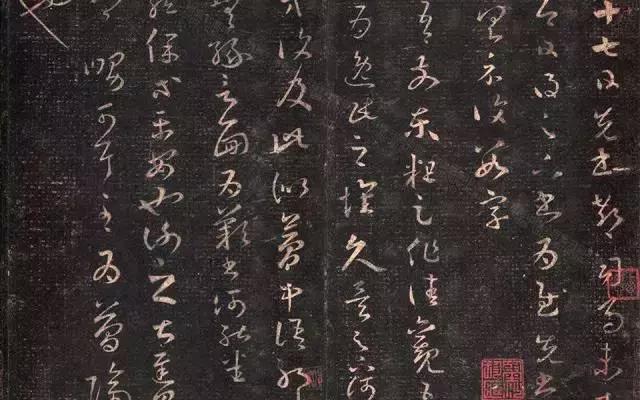 十七日先書郗司馬未去
即日得足下書為慰先書
具示復數字
吾前東粗足作佳觀吾
為逸民之懷久矣足下何
方復及此似夢中語耶
無緣言面為歎書何能悉
龍保等平安也謝之甚遲見
舅可耳至為簡隔